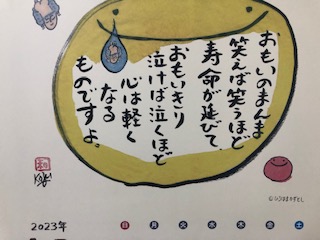 おもいのまんま
笑えば笑うほど
寿命が延びて、
おもいきり
泣けば泣くほど
心は軽く
なる
ものですよ。
2023年
日 月 火 水 木 金 土